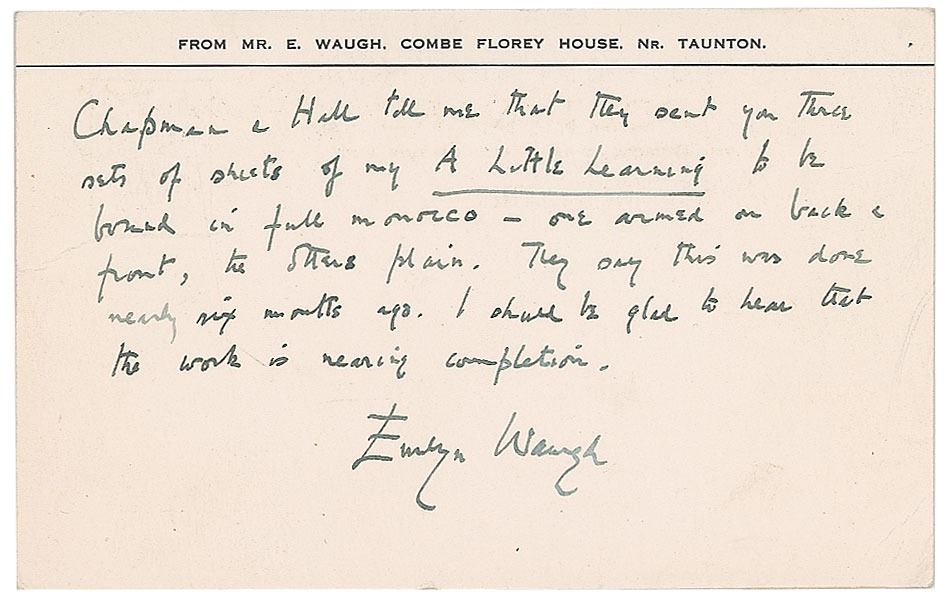 FROM MR. E. WAUGH, COMBE FLOREY HOUSE, Nr. TAUNTON.
Chapman & Hall tell me that they sent you three
sets of sheets of my A Little Learning to be
bound in full morocco – one armed on back &
front, the others plain. They say this was done
nearly six months ago. I should be glad to hear that
the work is nearing completion.
Evelyn Waugh